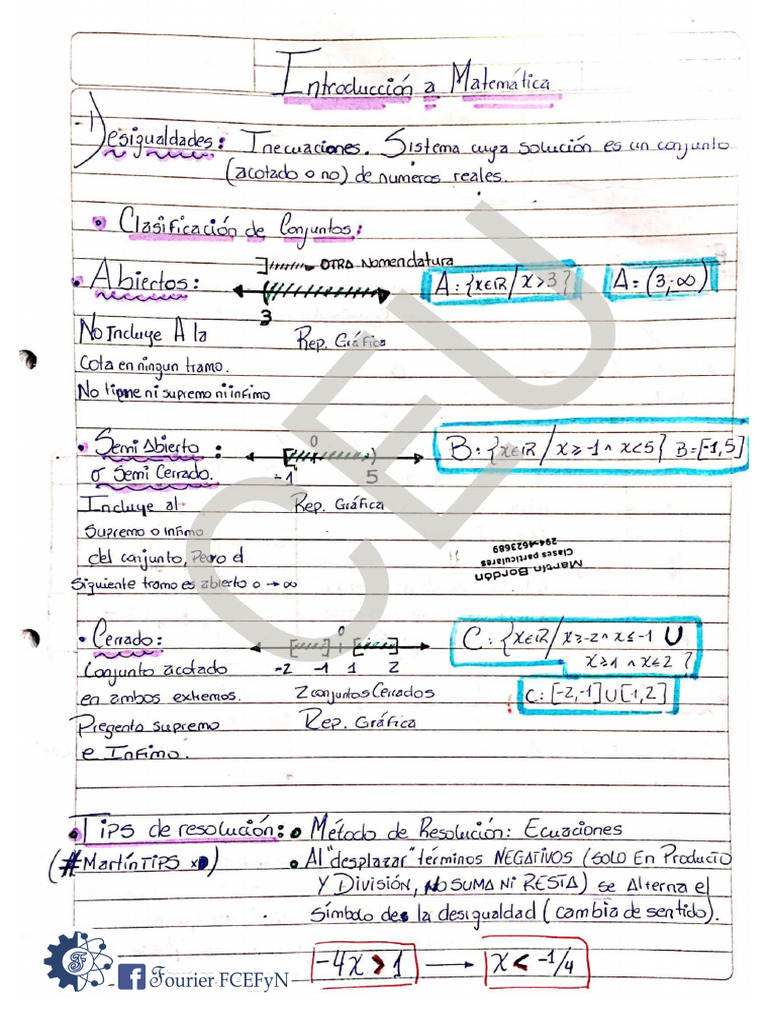 Introducción a Matemática
-1) Desigualdades: Inecuaciones. Sistema cuya solución es un conjunto
(acotado o no) de números reales.
• Clasificación de Conjuntos:
OTRA Nomenclatura
• Abiertos:
3
A: {x∈ℝ/x>3}
A=(3,-∞)
No Incluye A la
Rep. Gráfica
Cota en ningun tramo.
No tiene ni supremo ni infimo
• Semi Abierto :
0
-1 5
B: {x∈ℝ/x≥-1 ∧ x<5} B=[-1,5]
o Semi Cerrado.
Incluye al
Rep. Gráfica
Supremo o infimo
del conjunto, Pero el
Siguiente tramo es abierto o → ∞
Martín Bordón
Clases particulares
294-4623689
• Cerrado:
0
-2 -1 1 2
C: {x∈ℝ/x≥-2 ∧ x≤-1 U
x≥1 ∧ x≤2 }
Conjunto acotado
en ambos extremos.
2 conjuntos Cerrados
C: [-2,-1]U[1,2]
Presenta supremo
Rep. Gráfica
e Infimo.
• Tips de resolución: • Método de Resolución: Ecuaciones
(#MartínTIPS xD)
• Al "desplazar" términos NEGATIVOS (SOLO En Producto
Y División, NO SUMA NI RESTA) se Alterna el
símbolo de la desigualdad (cambia de sentido).
-4x > 1 → x < -1/4
CEU
Fourier FCEFyN